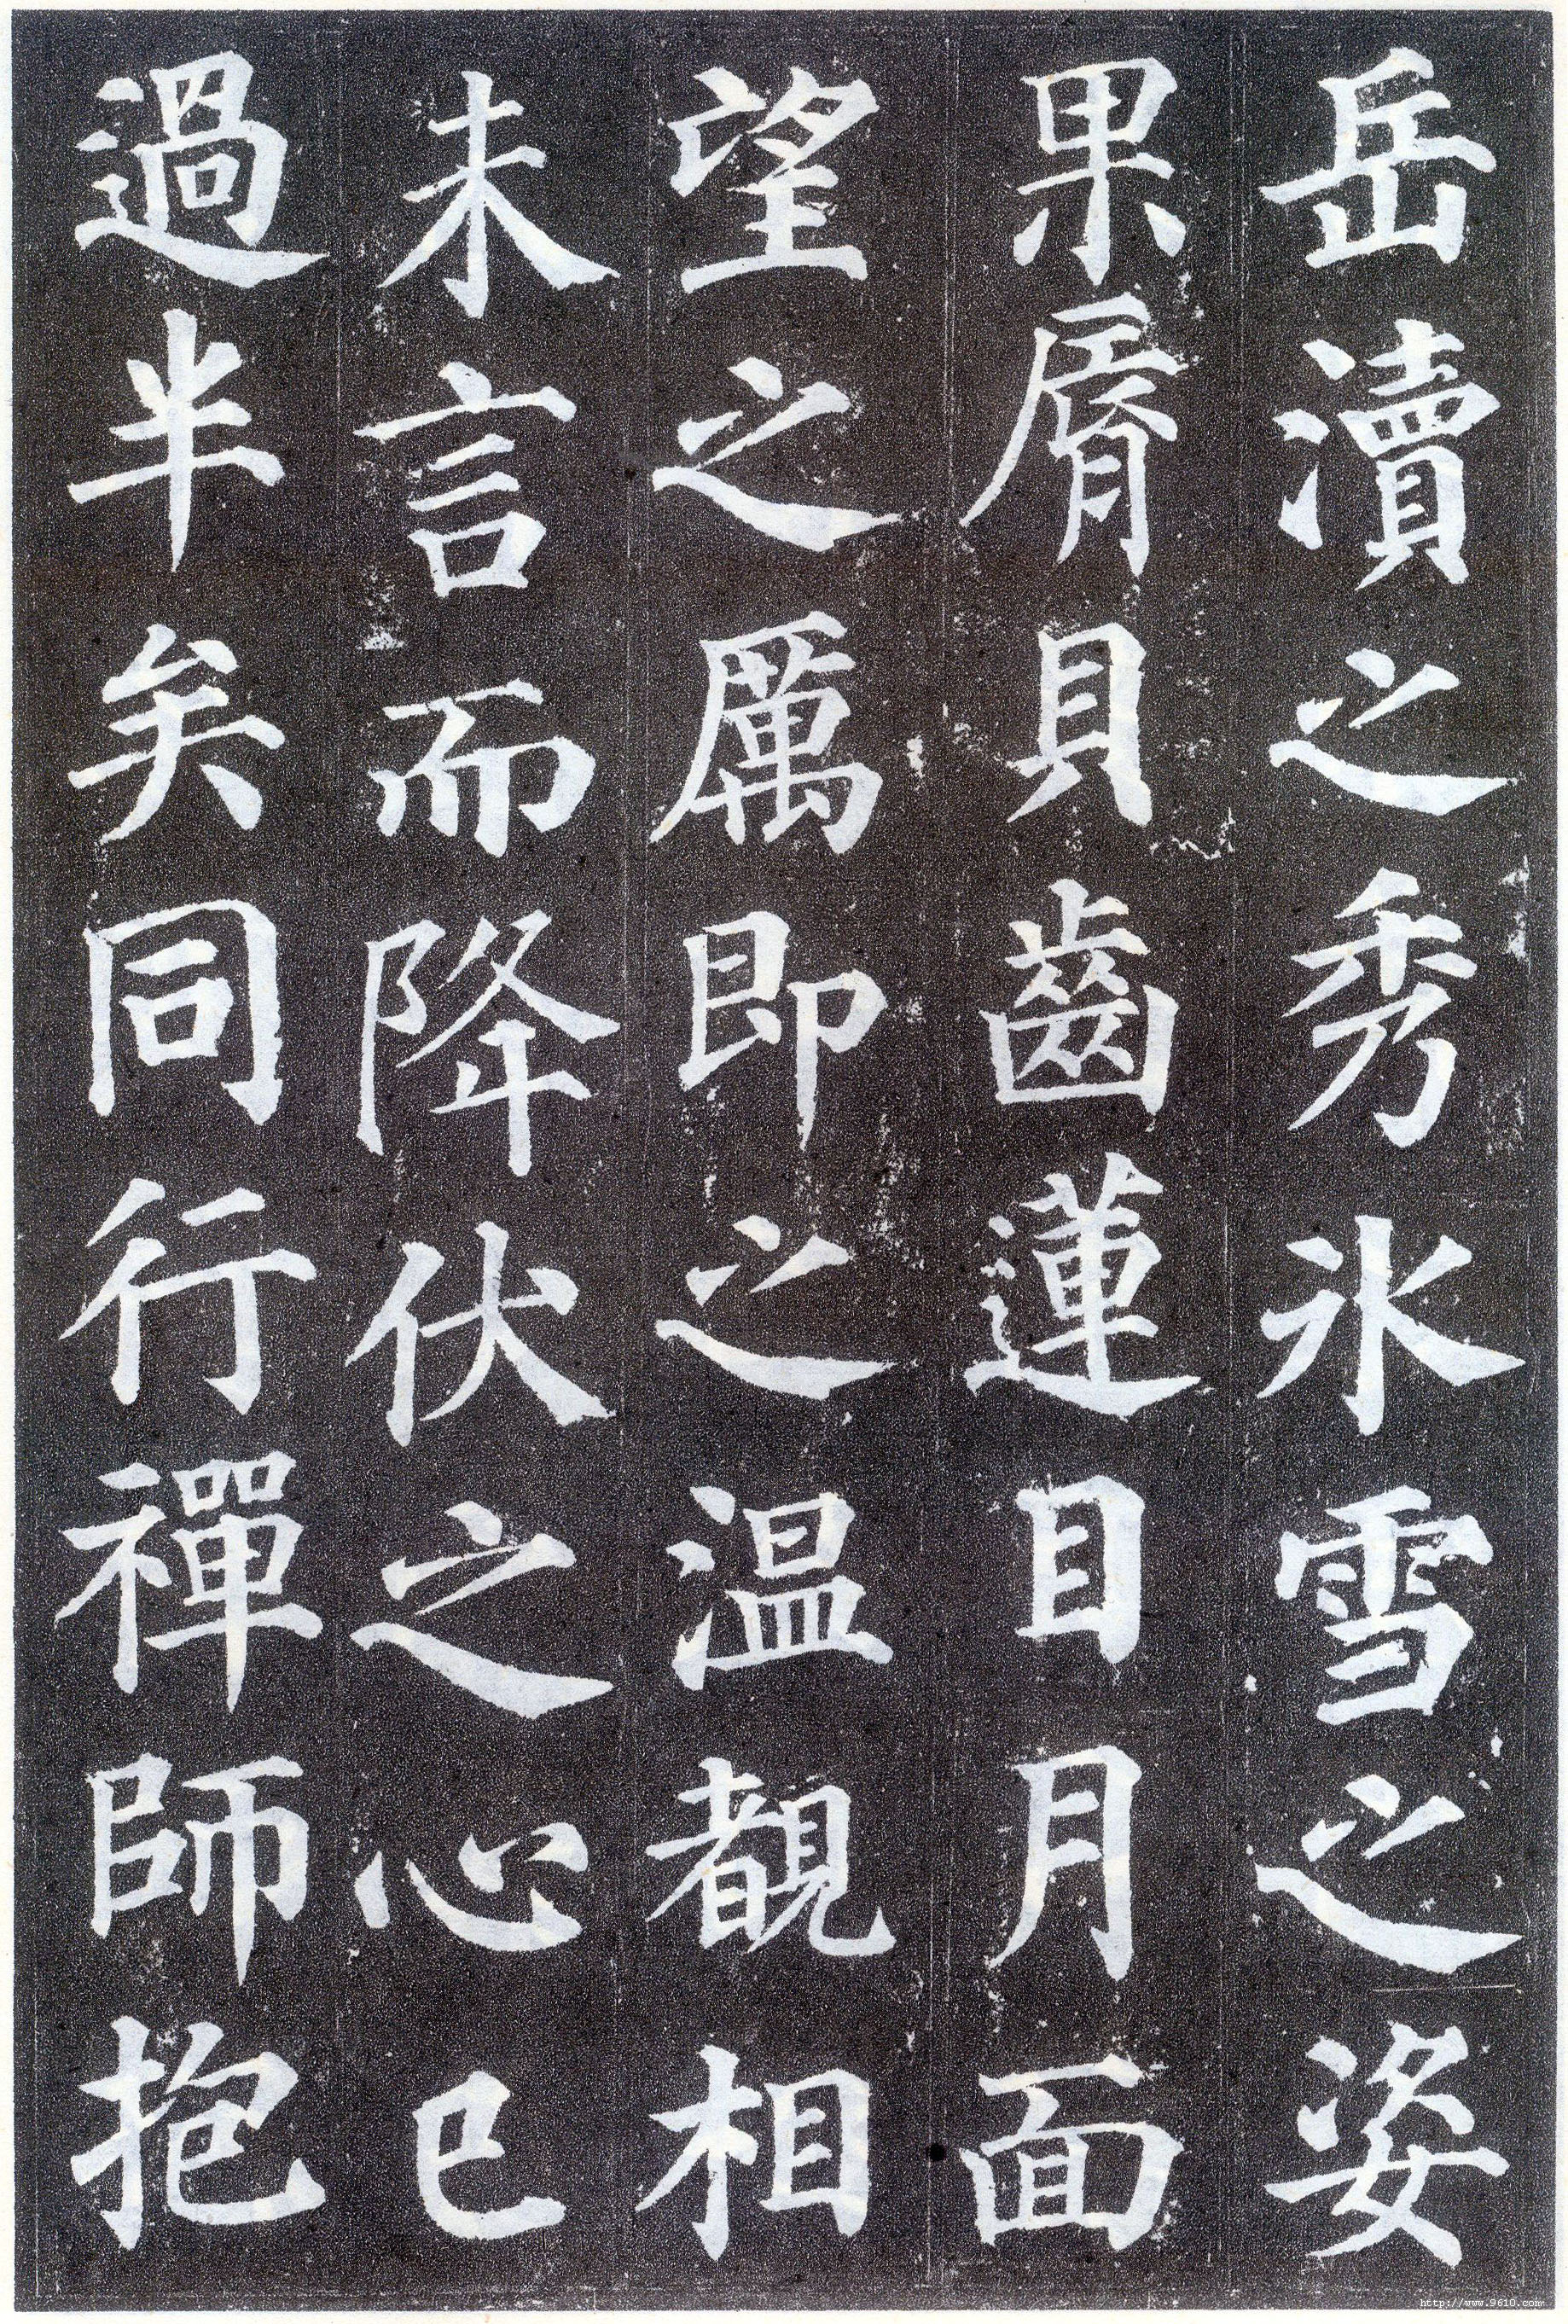 岳瀆之秀氷雪之姿
果脣貝齒蓮目月面
望之厲即之温覩相
未言而降伏之心已
過半矣同行禪師抱
http://www.9610.com